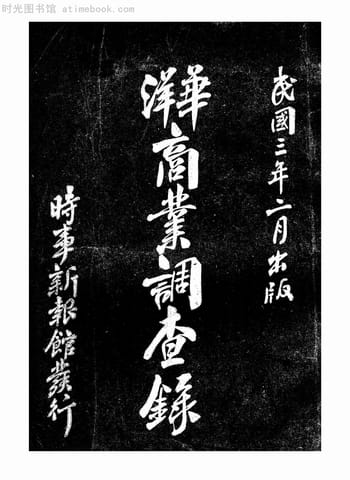 时光图书馆 - atimebook.com
民國三年二月出版
華洋商業調查錄
時事新報館發行